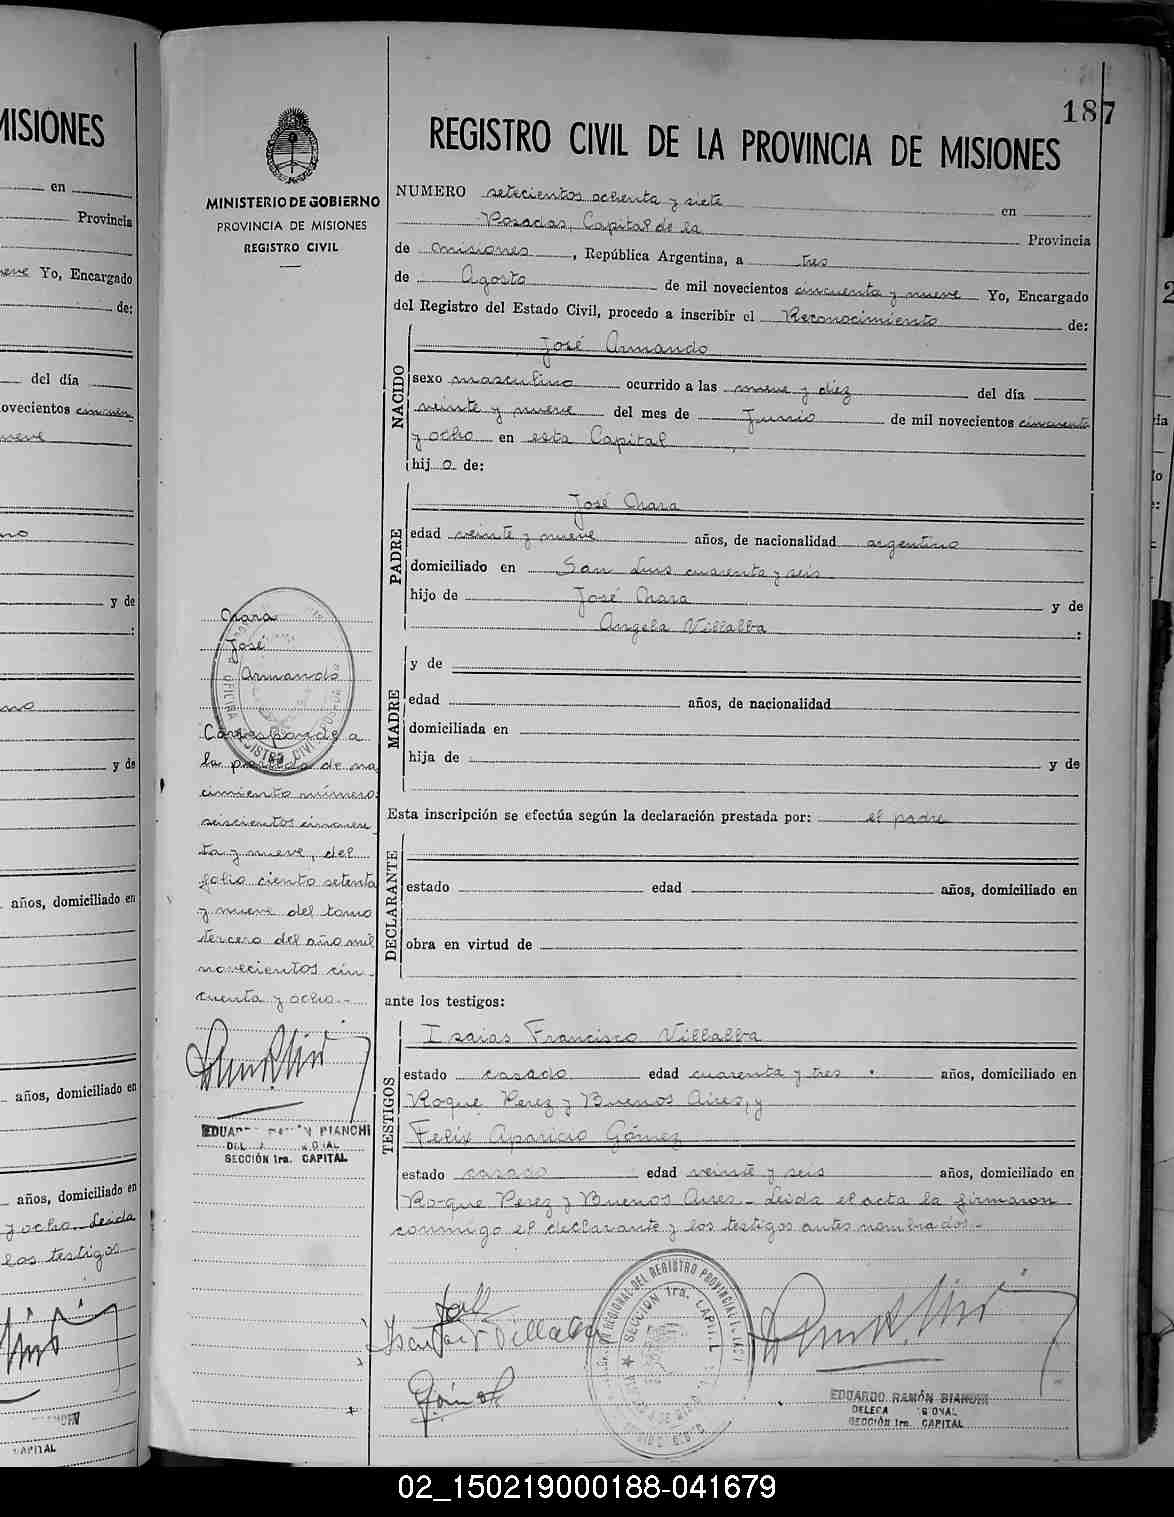 MISIONES
en
Provincia
Yo, Encargado
de:
del día
ovecientos
y de
:
y de
años, domiciliado en
años, domiciliado en
años, domiciliado en
y ocho. Leida
los testigos
CAPITAL
187
MINISTERIO DE GOBIERNO
PROVINCIA DE MISIONES
REGISTRO CIVIL
REGISTRO CIVIL DE LA PROVINCIA DE MISIONES
NUMERO setecientos ochenta y siete en
Posadas, Capital de la Provincia
de Misiones, República Argentina, a tres
de Agosto de mil novecientos cincuenta y nueve Yo, Encargado
del Registro del Estado Civil, procedo a inscribir el Reconocimiento de:
NACIDO
José Armando
sexo masculino ocurrido a las nueve y diez del día
veinte y nueve del mes de Junio de mil novecientos cincuenta
y ocho en esta Capital
hij o de:
PADRE
José
edad veinte y nueve años, de nacionalidad argentino
domiciliado en San Luis cuarenta y seis
hijo de José y de
Angela Villalba :
MADRE
y de
edad años, de nacionalidad
domiciliada en
hija de y de
Esta inscripción se efectúa según la declaración prestada por: el padre
DECLARANTE
estado edad años, domiciliado en
obra en virtud de
ante los testigos:
TESTIGOS
Isaias Francisco Villalba
estado casado edad cuarenta y tres años, domiciliado en
Roque Perez y Buenos Aires, y
Felix Aparicio Gómez
estado casado edad veinte y seis años, domiciliado en
Roque Perez y Buenos Aires. Leida el acta la firmaron
conmigo el declarante y los testigos antes nombrados.-
José
Armando
Corresponde a
la partida de na
cimiento número
seiscientos cincuen
ta y nueve, del
folio ciento setenta
y nueve del tomo
tercero del año mil
novecientos cin
cuenta y ocho.-
EDUARDO RAMÓN BIANCHI
SECCIÓN 1ra. CAPITAL
Villalba
SECCION 1ra. CAPITAL
EDUARDO RAMÓN BIANCHI
SECCIÓN 1ra. CAPITAL
02_150219000188-041679